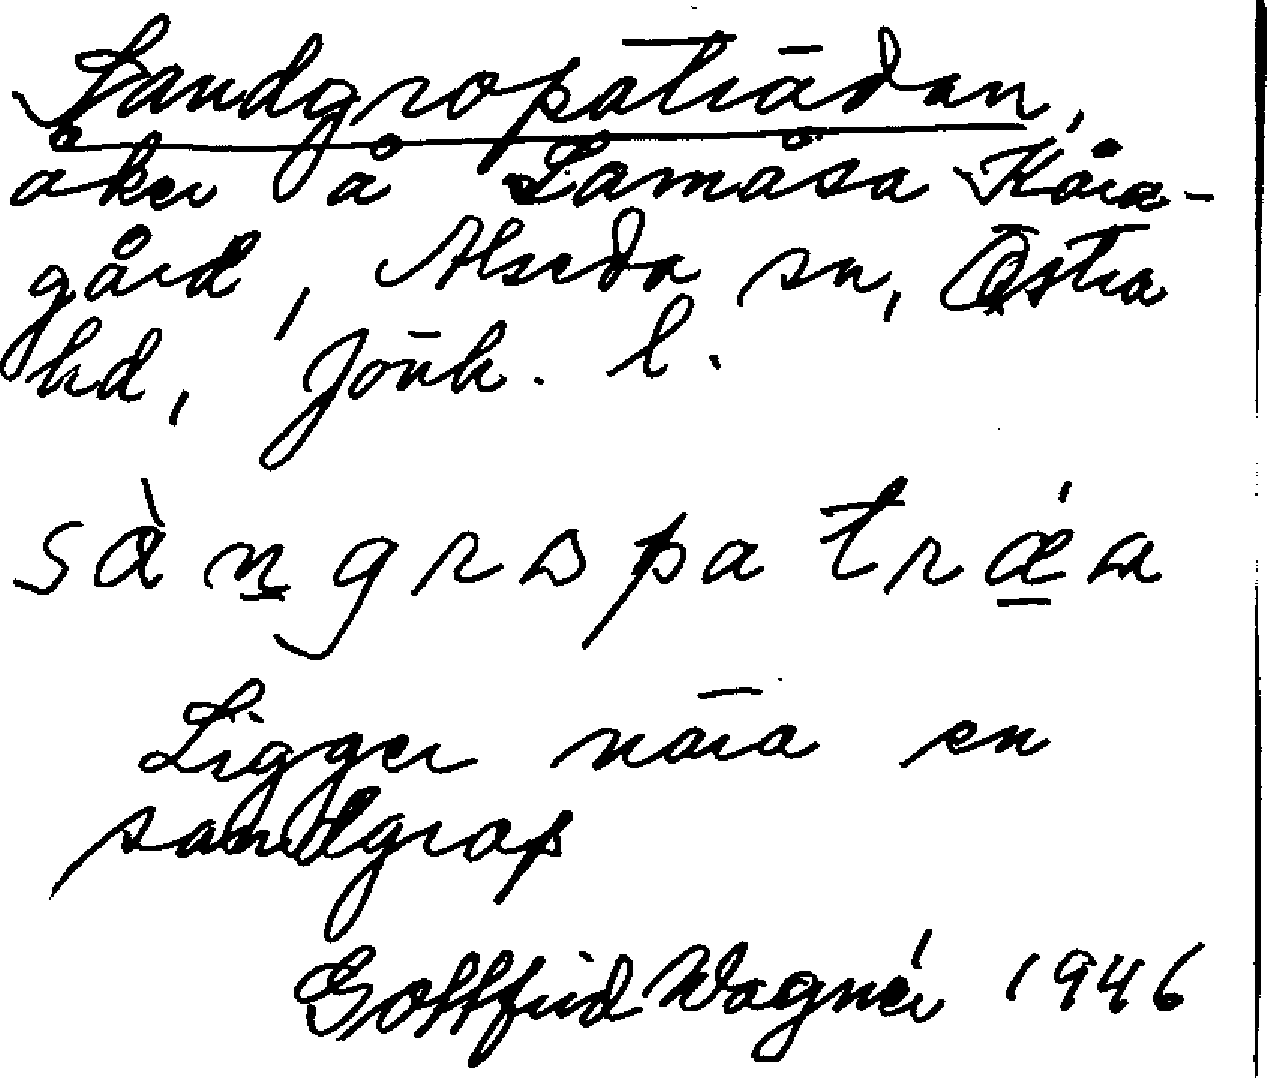 Sandgropaträdan,
åker å Lamåsa Kåra-
gård, Alseda sn, Östra
hd, Jönk. l.
sàngropatrǽa
Ligger nära en
sandgrop
Gottfrid Wagnér 1946